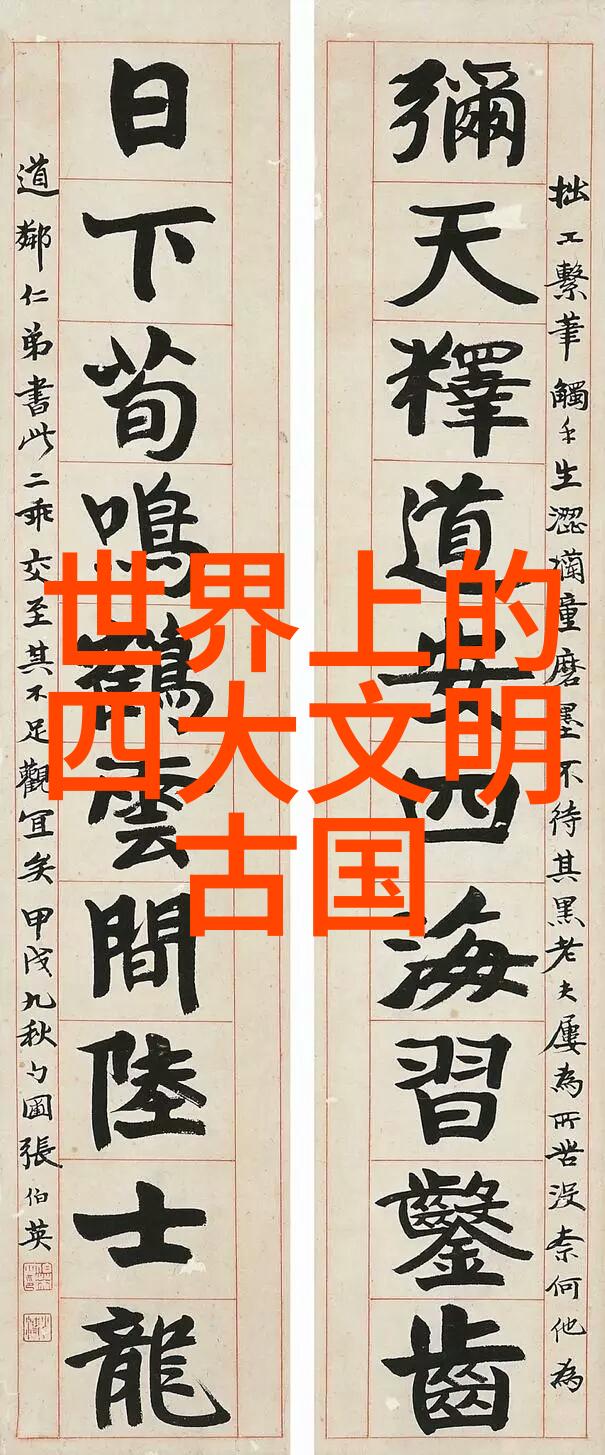 世界上的
四大文明
古国
彌天釋道安四海習鑿齒
日下荀鳴鶴雲間陸士龍
拙工繫筆觸手生澀懶童磨墨不待其黑老夫屢為所苦沒奈何他為
道鄰仁弟書此二乖交至其不足觀宜矣甲戌九秋勺圃張伯英